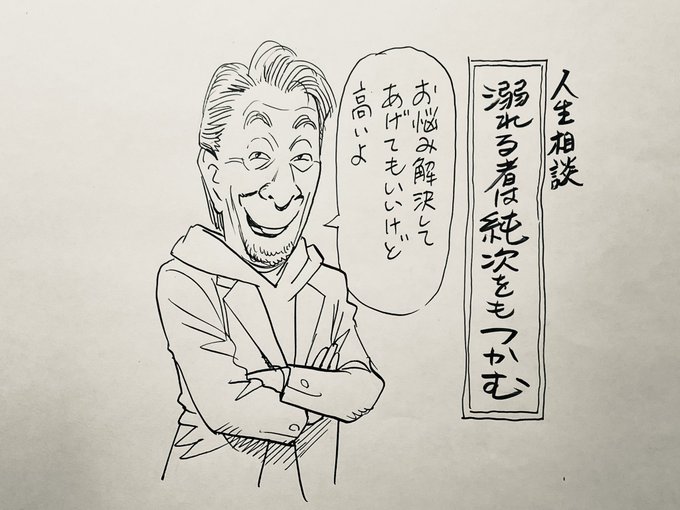 人生相談
溺れる者は純次をもつかむ
お悩み解決して
あげてもいいけど
高いよ